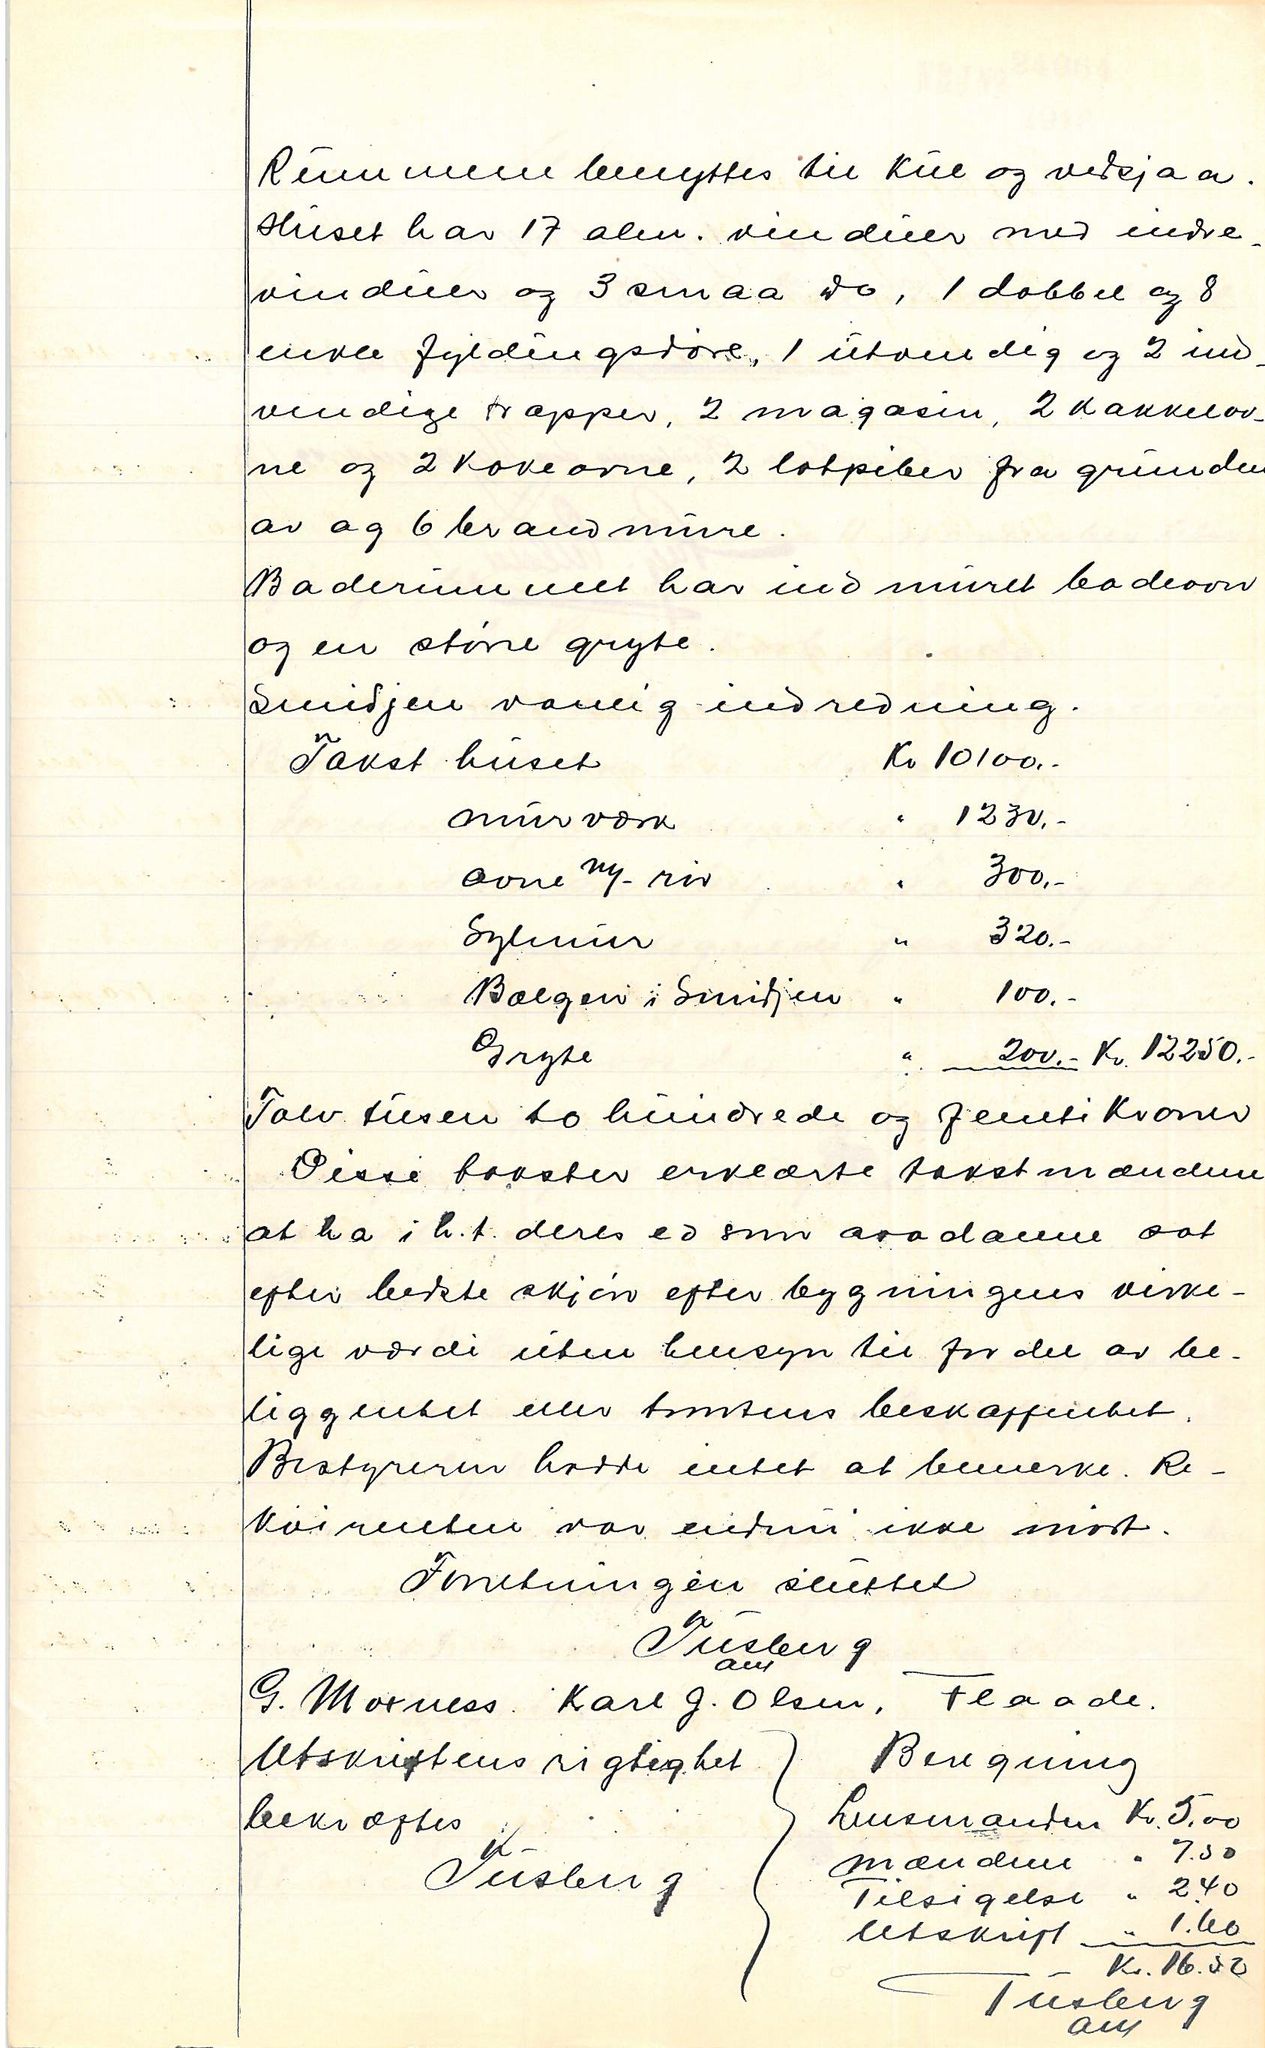 Rummene benyttes til kul og vedsjaa.
Huset har 17 alm. vinduer med indre-
vinduer og 3 smaa do, 1 dobbel og 8
enkle fyldingsdøre, 1 utvendig og 2 ind-
vendige trapper, 2 magasin, 2 kakkelov-
ne og 2 kokeovne, 2 lotpiber fra grunden
av og 6 brandmure.
Baderummet har indmuret badeovn
og en større gryte.
Smidjen vanlig indredning.
Takst huset Kr 10100.-
murværk " 1230.-
ovne rør " 300.-
Sylmur " 320.-
Bælgen i Smidjen " 100.-
Gryte " 200.- Kr. 12250.-
Tolv tusen to hundrede og femti kroner
Disse takster erklærte takstmændene
at ha i h.t. deres ed som saadanne sat
efter bedste skjøn efter bygningens virke-
lige værdi uten hensyn til fordel av be-
liggenhet eller tomtens beskaffenhet.
Bestyreren hadde intet at bemerke. Re-
kvirenten var endnu ikke møtt.
Forretningen sluttet
Tusberg
G. Moxness. Karl J. Olsen, Flaade.
Utskriftens rigtighet
bekræftes
Tusberg
Beregning
Lensmanden Kr. 5.00
mændene " 7.50
Tilsigelse " 2.40
Utskrift " 1.60
Kr. 16.50
Tusberg